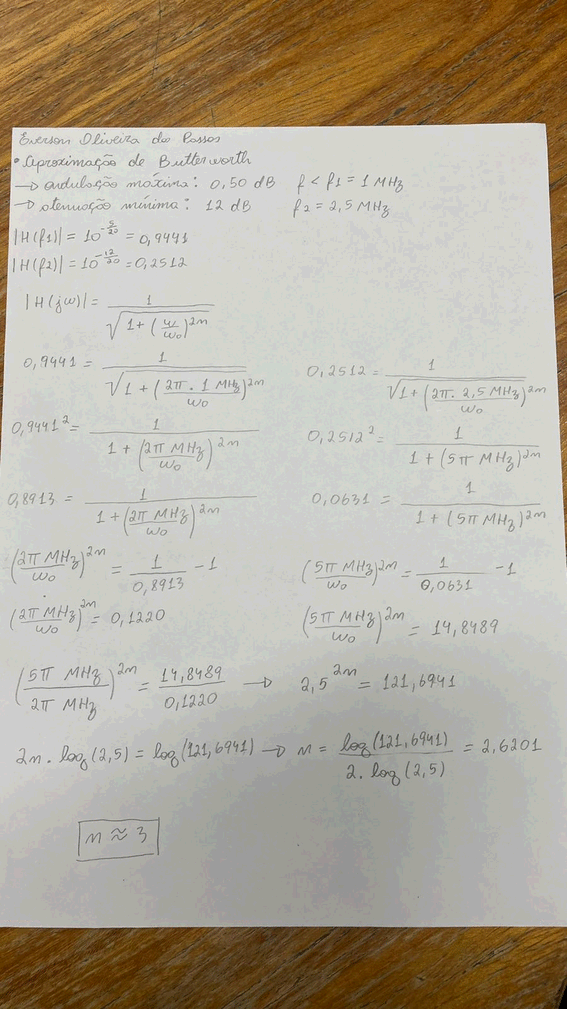 Everson Oliveira dos Passos
• Aproximação de Butterworth
→ ondulação máxima: 0,50 dB f < f1 = 1 MHz
→ atenuação mínima: 12 dB f2 = 2,5 MHz
|H(f1)| = 10^(-5/20) = 0,9441
|H(f2)| = 10^(-12/20) = 0,2512
|H(jω)| = 1/√(1 + (ω/ω0)^2n)
0,9441 = 1/√(1 + (2π . 1 MHz/ω0)^2n) 0,2512 = 1/√(1 + (2π . 2,5 MHz/ω0)^2n)
0,9441² = 1/(1 + (2π MHz/ω0)^2n) 0,2512² = 1/(1 + (5π MHz)^2n)
0,8913 = 1/(1 + (2π MHz/ω0)^2n) 0,0631 = 1/(1 + (5π MHz)^2n)
(2π MHz/ω0)^2n = 1/0,8913 - 1 (5π MHz/ω0)^2n = 1/0,0631 - 1
(2π MHz/ω0)^2n = 0,1220 (5π MHz/ω0)^2n = 14,8489
(5π MHz/2π MHz)^2n = 14,8489/0,1220 → 2,5^2n = 121,6941
2n . log(2,5) = log(121,6941) → n = log(121,6941)/(2. log(2,5)) = 2,6201
n ≈ 3